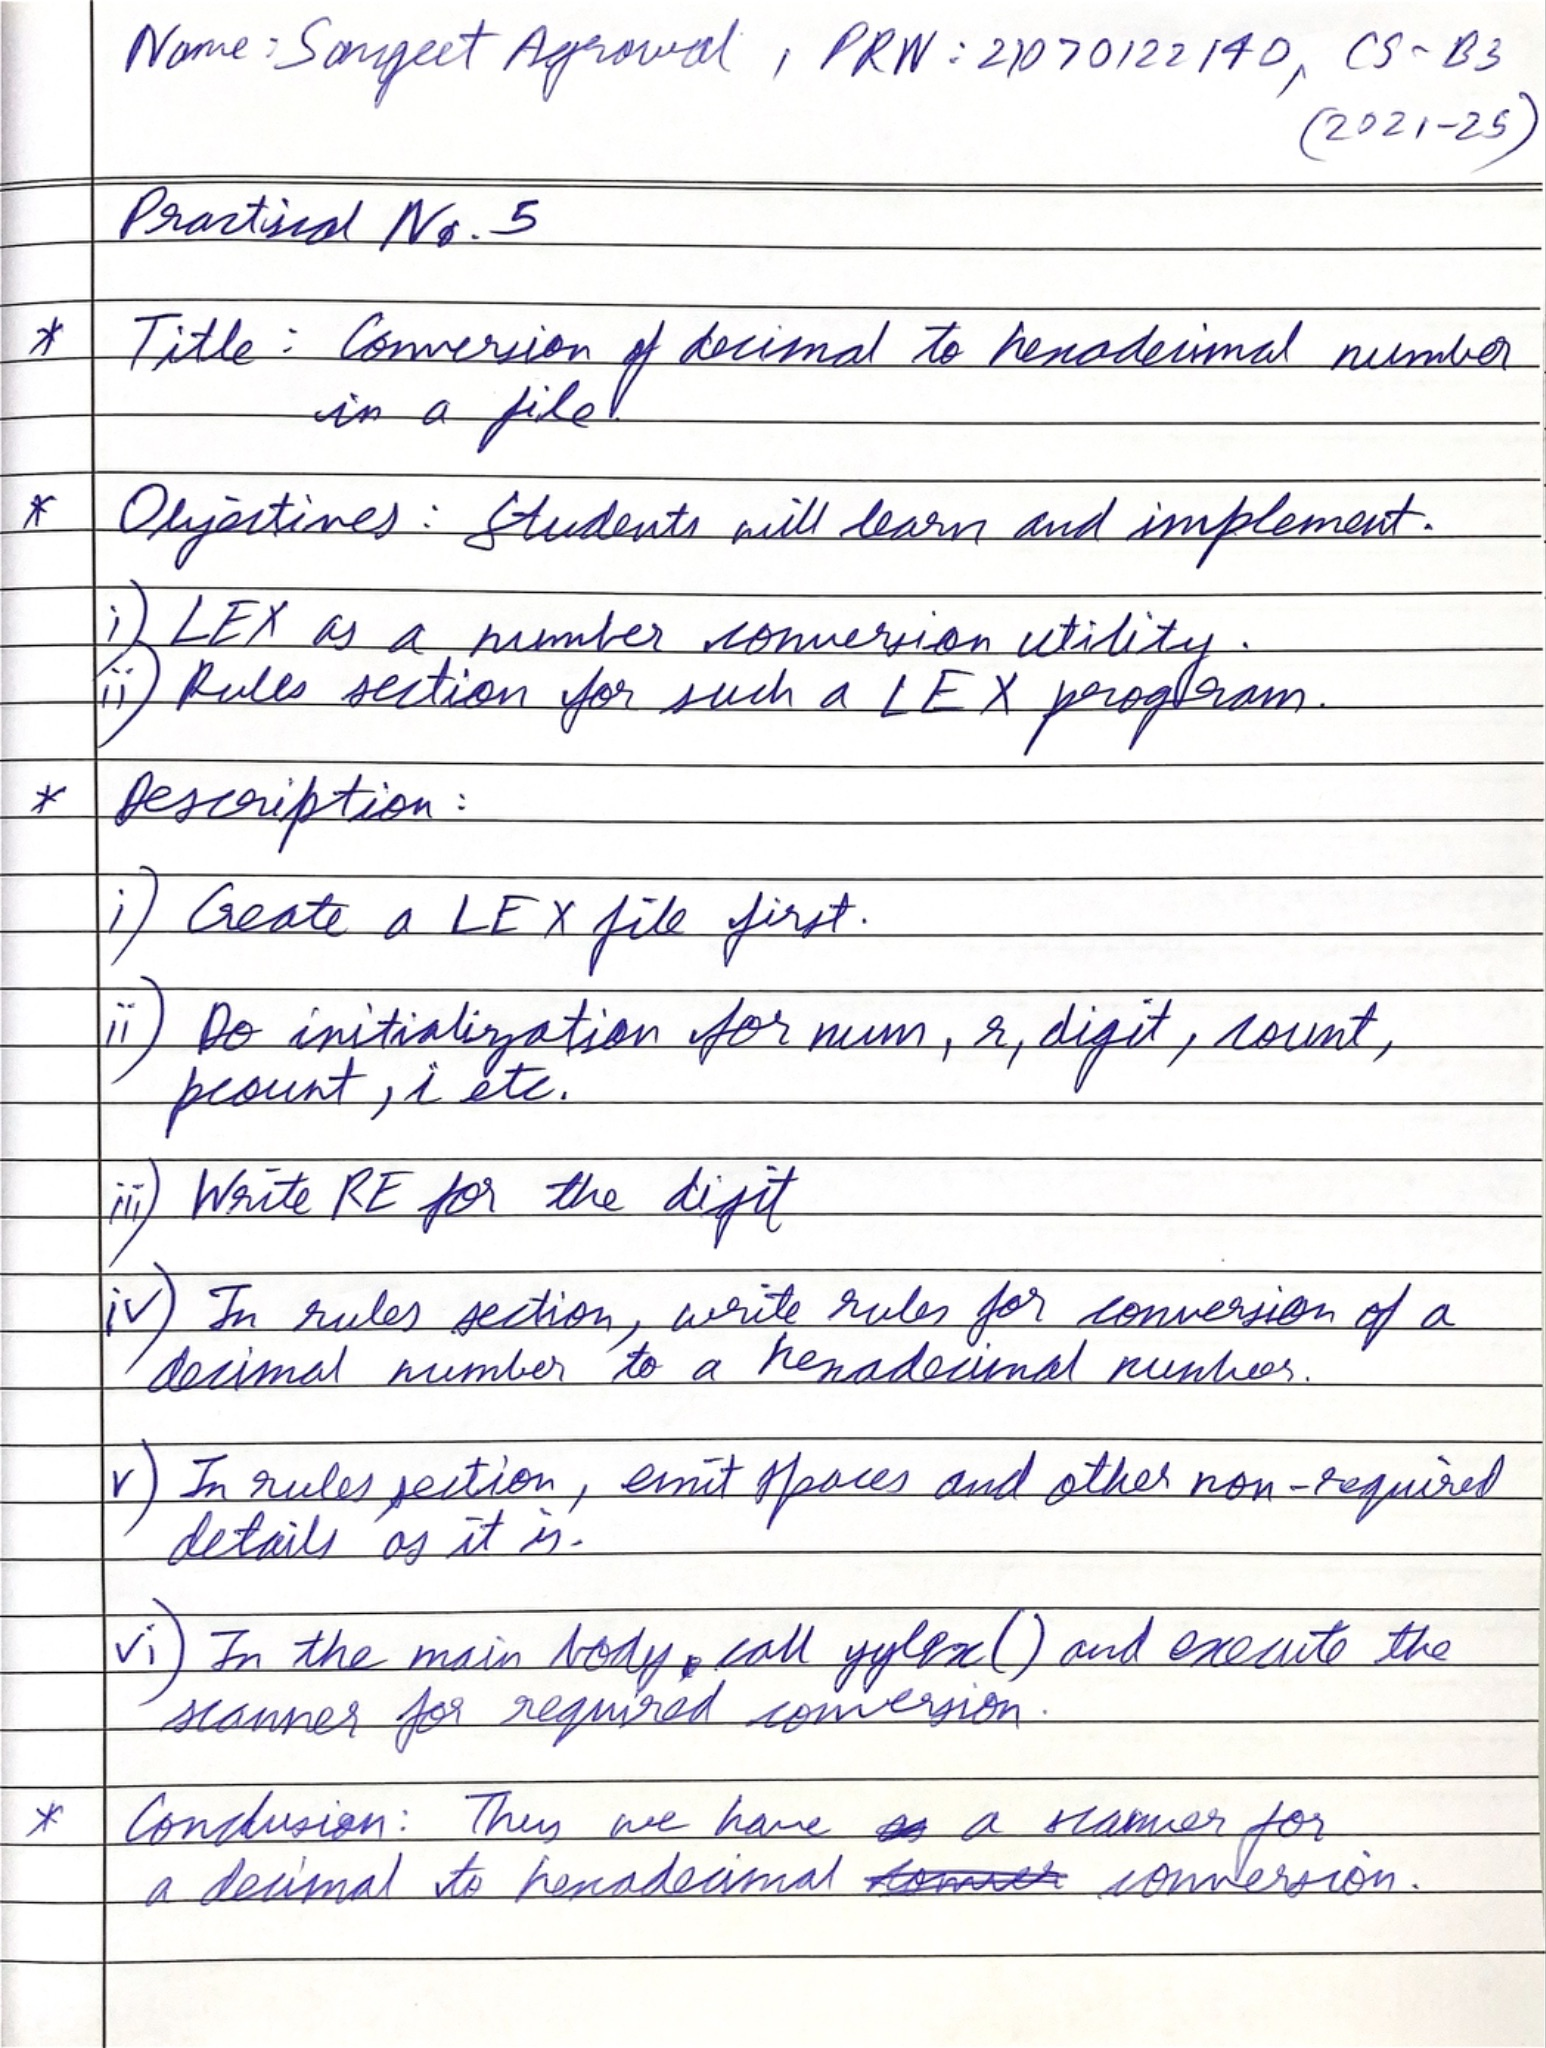 Name: Sangeet Agrawal, PRN: 21070122140, CS-B3
(2021-25)
Practical No. 5
* Title: Conversion of decimal to hexadecimal number
in a file.
* Objectives: Students will learn and implement.
i) LEX as a number conversion utility.
ii) Rules section for such a LEX program.
* Description:
i) Create a LEX file first.
ii) Do initialization for num, r, digit, count,
pcount, i etc.
iii) Write RE for the digit
iv) In rules section, write rules for conversion of a
decimal number to a hexadecimal number.
v) In rules section, emit spaces and other non-required
details as it is.
vi) In the main body, call yylex() and execute the
scanner for required conversion.
* Conclusion: Thus we have a scanner for
a decimal to hexadecimal conversion.